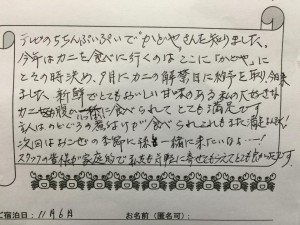 テレビのちちんぷいぷいで"かどや"さんを知りました。
今年はカニを食べに行くのはここに「かどや」に
とその時決め、9月にカニの解禁日に予約を取り、今日来
ました。新鮮でとてもおいしい甘味のある私の大好きな
カニがお腹一杯に食べられてとても満足です
主人はのどぐろの煮付けが食べられこれもまた満足みたい!
次回はおこぜの季節に孫と一緒に来たいなぁ…!
スタッフの皆様が家庭的で私共も気軽に寄せてもらえてとても良かったです。
ご宿泊日:11月6日 お名前(匿名可):